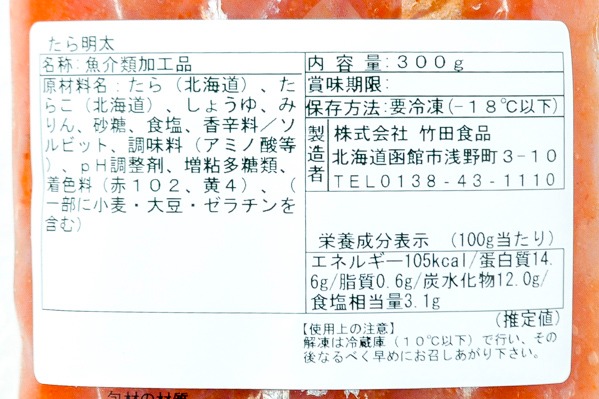 たら明太
名称:魚介類加工品
原材料名:たら（北海道）、た
らこ（北海道）、しょうゆ、み
りん、砂糖、食塩、香辛料／ソ
ルビット、調味料（アミノ酸等
）、pH調整剤、増粘多糖類、
着色料（赤102、黄4）、（
一部に小麦・大豆・ゼラチンを
含む）
内容量:300g
賞味期限:
保存方法:要冷凍(－18℃以下)
製造者
株式会社 竹田食品
北海道函館市浅野町3－10
TEL0138-43-1110
栄養成分表示 (100g当たり)
エネルギー105kcal/蛋白質14.
6g/脂質0.6g/炭水化物12.0g/
食塩相当量3.1g
(推定値)
【使用上の注意】
解凍は冷蔵庫（10℃以下）で行い、その
後なるべく早めにお召しあがり下さい。
包材の材質